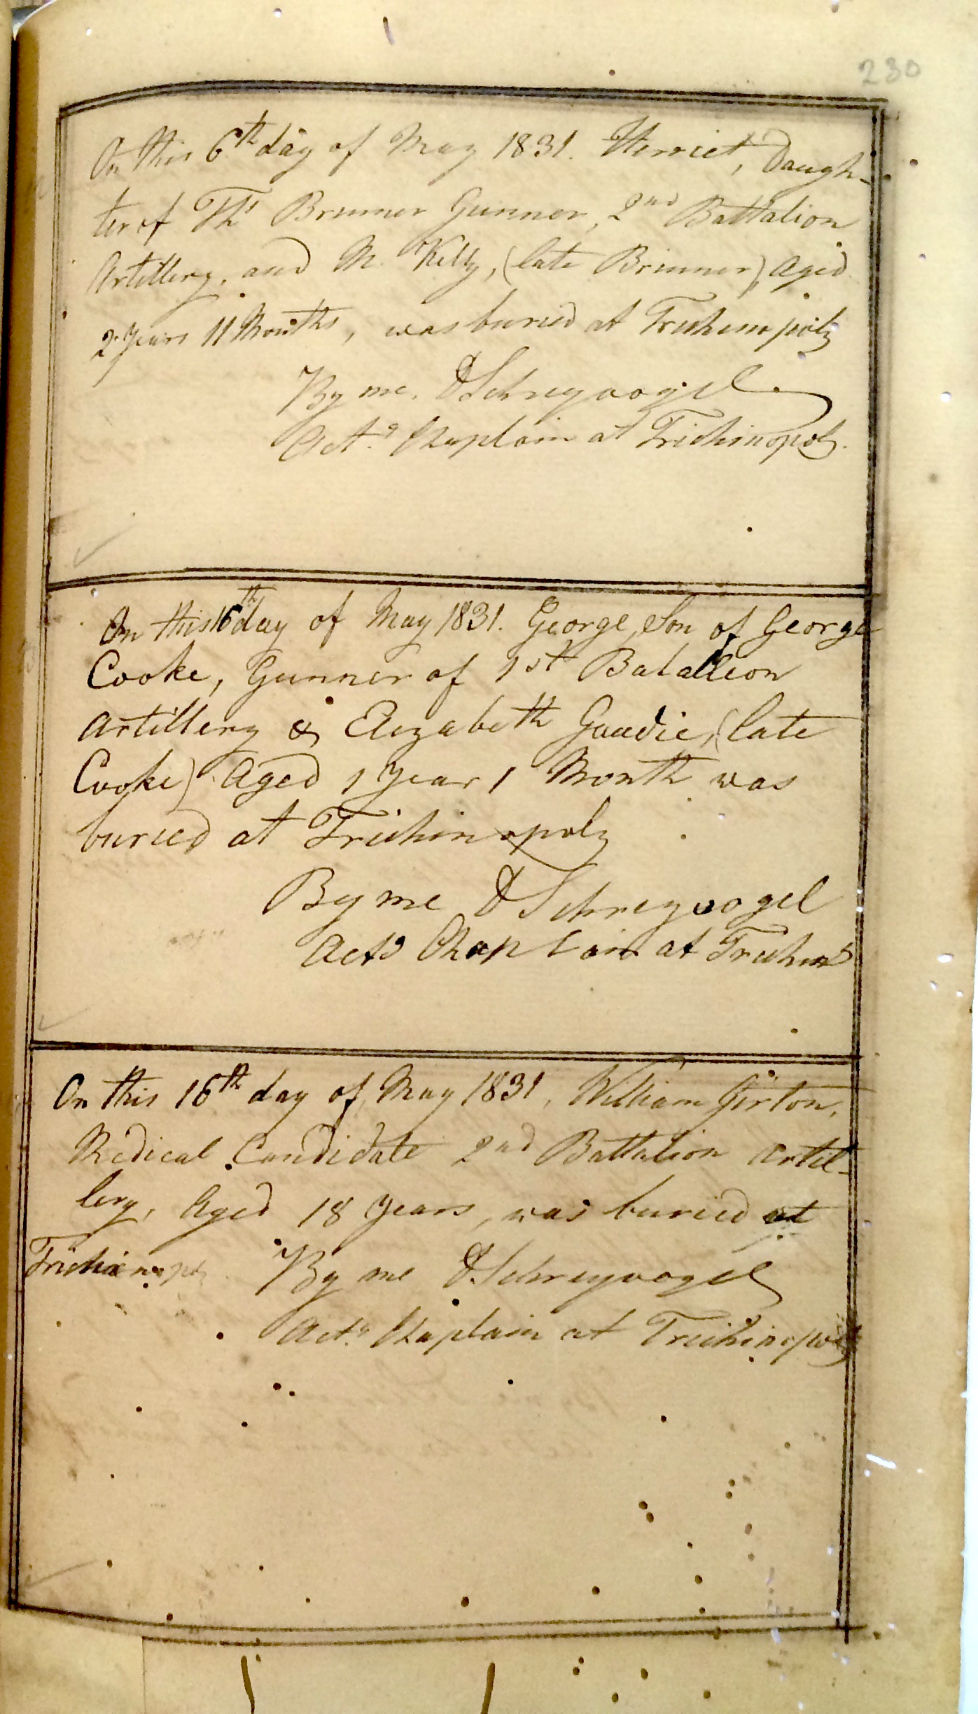 230
On this 6th day of May 1831. Herriet, Daugh-
ter of Ths Brunner Gunner, 2nd Battalion
Artillery, and M. Kelly, (late Brunner) Aged
2 Years 11 Months, was buried at Trichinopoly
By me. D Schreyvogel
Actg Chaplain at Trichinopoly.
On this 16th day of May 1831. George, Son of George
Cooke, Gunner of 1st Batallion
Artillery & Elizabeth Gaudie, (late
Cooke) Aged 1 Year 1 Month was
buried at Trichinopoly
By me D Schreyvogel
Actg Chaplain at
On this 16th day of May 1831, William Girton,
Medical Candidate 2nd Battalion Artil-
lery, Aged 18 Years, was buried at
Trichinopoly By me D. Schreyvogel
Actg Chaplain at Trichinopoly